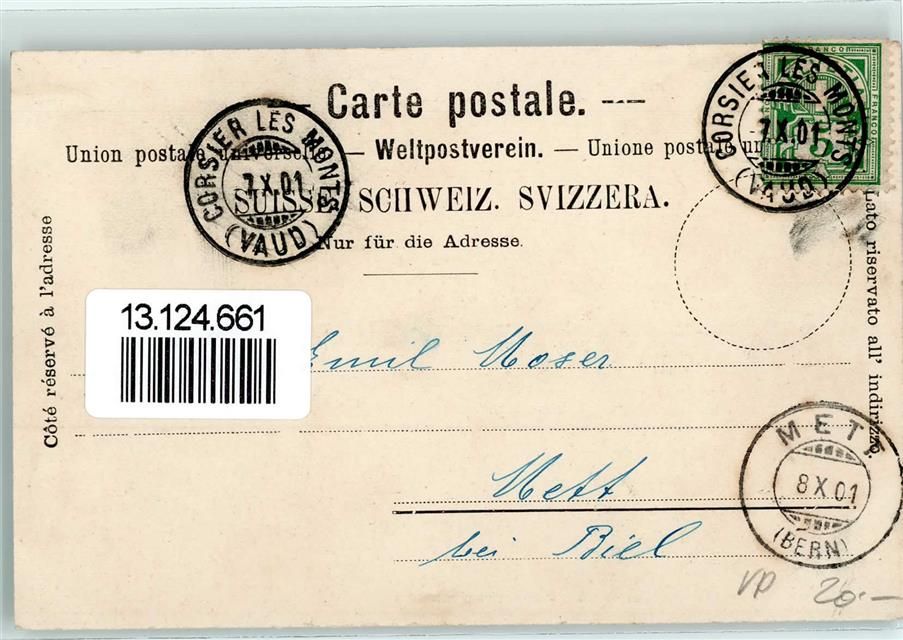 — Carte postale. —
Union postale universelle — Weltpostverein. — Unione postale un
SUISSE SCHWEIZ. SVIZZERA.
Nur für die Adresse.
CORSIER LES MONTS
7.X.01
(VAUD)
FRANCO
5
CORSIER LES MONTS
7.X.01
(VAUD)
Côté réservé à l'adresse
Lato riservato all' indirizzo.
13.124.661
Emil Moser
Mett
bei Biel
METT
8X01
(BERN)
VP 20.–